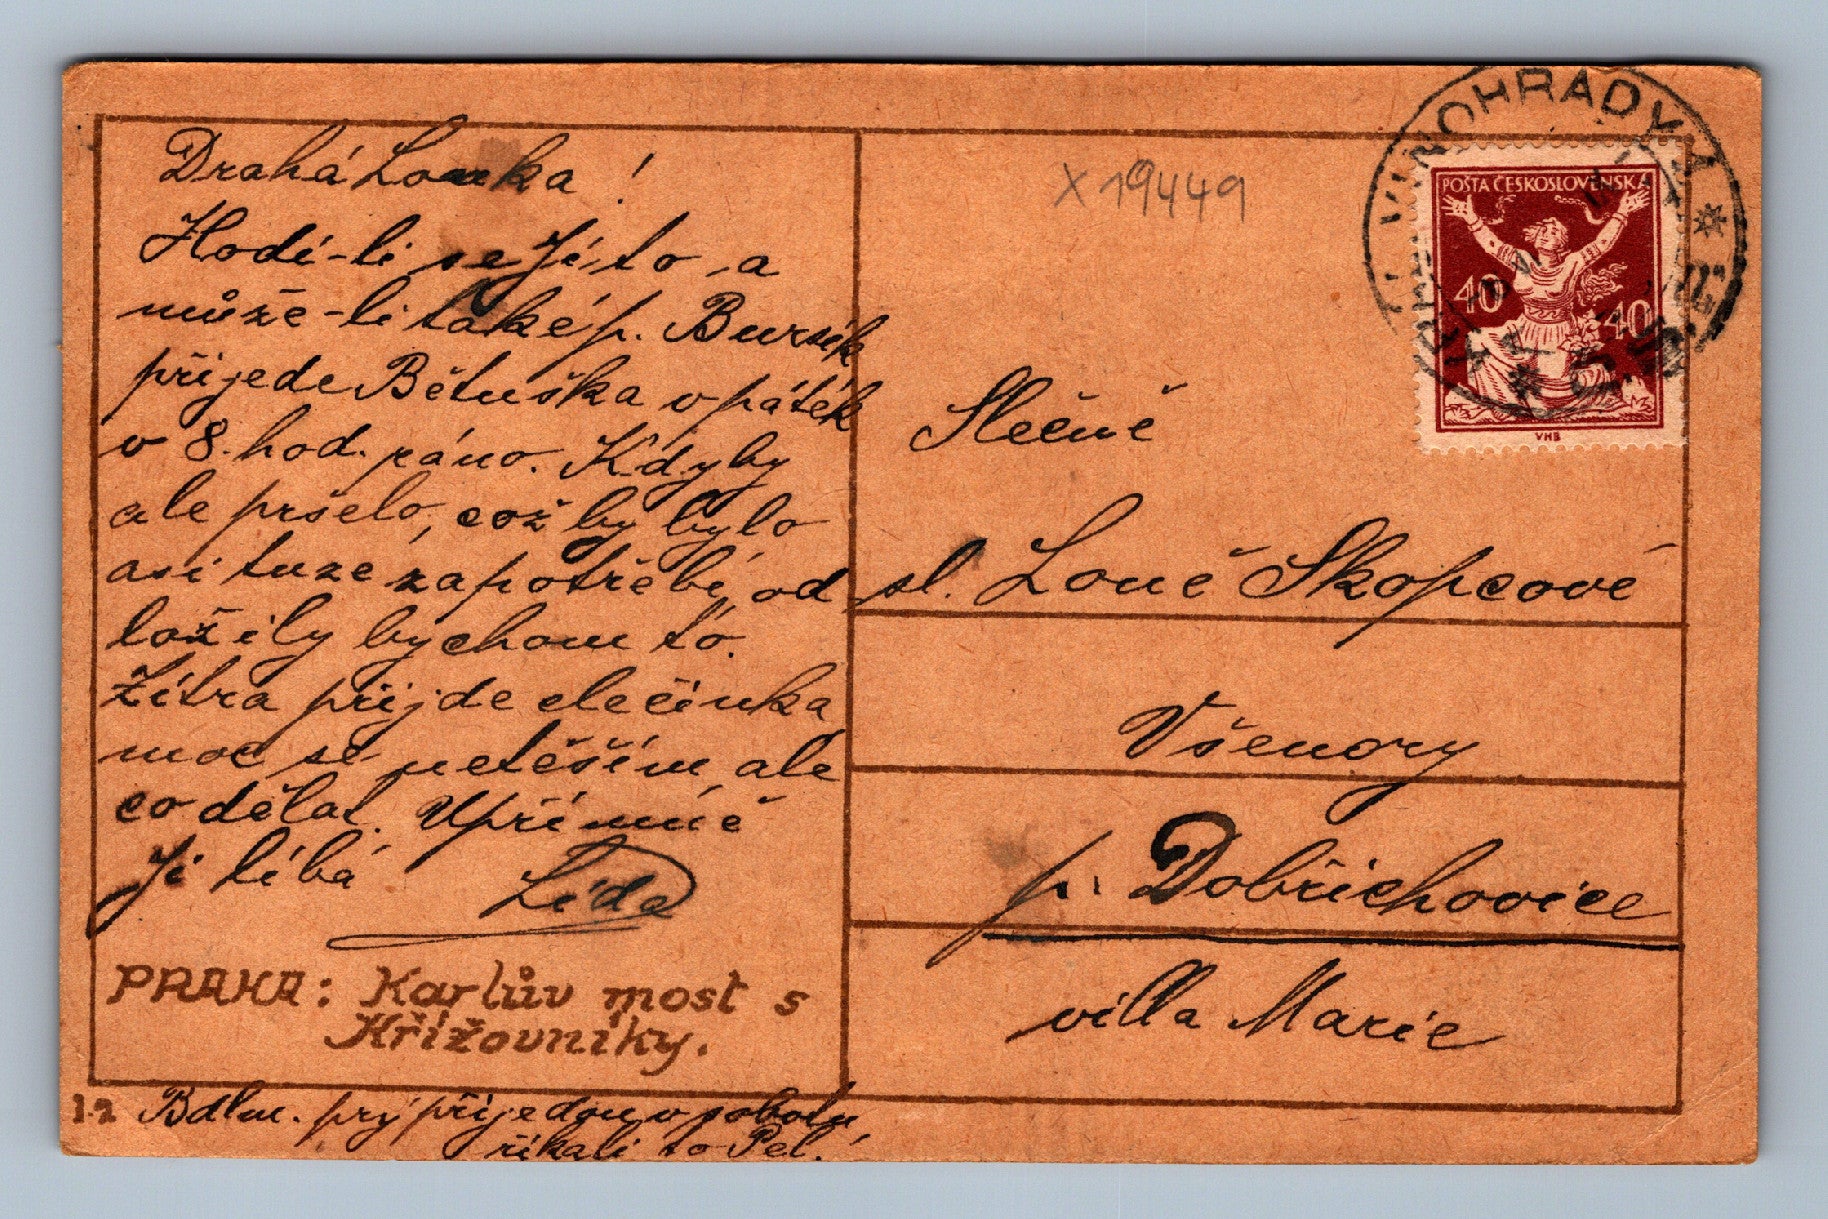 Drahá Lonka!
Hodí-li se Jí to a
může-li také p. Bursík
přijede Bětuška v pátek
v 8. hod. ráno. Kdyby
ale pršelo, což by bylo
asi tuze zapotřebí, od
ložily bychom to.
Zítra přijde slečinka
moc se netěším, ale
co dělat. Upřímně
Ji líbá
Lída
PRAHA: Karlův most s
Křížovníky.
1-2
Bdlm. prý přijedou v sobotu,
říkali to Pel.
X 19449
VINOHRADY
POŠTA ČESKOSLOVENSKÁ
40 40
VHB
Slečně
sl. Loně Skopcové
Všenory
p. Dobřichovice
villa Marie